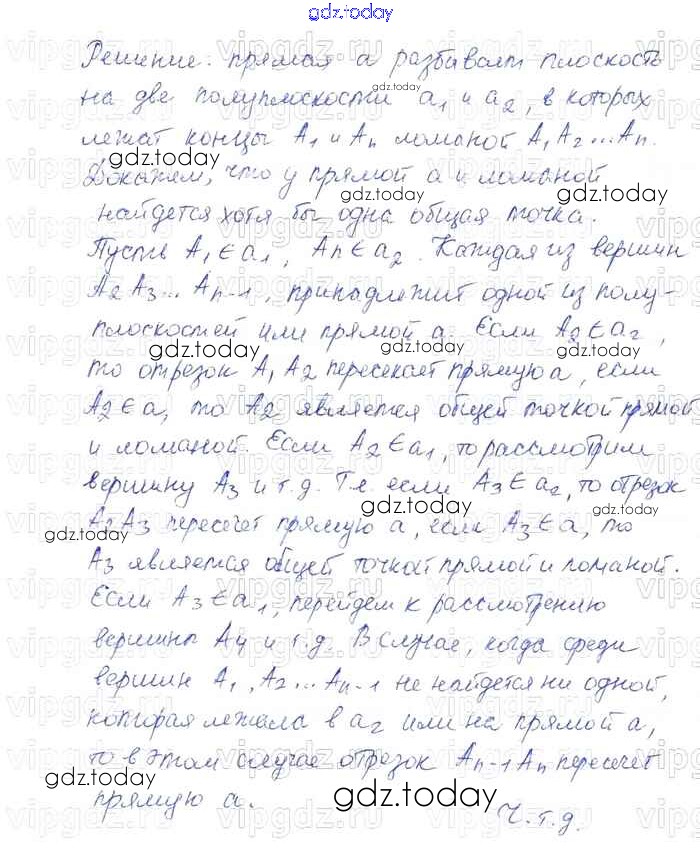 gdz.today
Решение: прямая a разбивает плоскость
на две полуплоскости a₁ и a₂, в которых
лежат концы A₁ и Aₙ ломаной A₁A₂...Aₙ.
Докажем, что у прямой a и ломаной
найдется хотя бы одна общая точка.
Пусть A₁ ∈ a₁, Aₙ ∈ a₂. Каждая из вершин
A₂A₃...Aₙ₋₁, принадлежит одной из полу-
плоскостей или прямой a. Если A₂ ∈ a₂,
то отрезок A₁A₂ пересекает прямую a, если
A₂ ∈ a, то A₂ является общей точкой прямой
и ломаной. Если A₂ ∈ a₁, то рассмотрим
вершину A₃ и т.д. Т.е если A₃ ∈ a₂, то отрезок
A₂A₃ пересечет прямую a, если A₃ ∈ a, то
A₃ является общей точкой прямой и ломаной.
Если A₃ ∈ a₁, перейдем к рассмотрению
вершины A₄ и т.д. В случае, когда среди
вершин A₁, A₂...Aₙ₋₁ не найдется ни одной,
которая лежала в a₂ или на прямой a,
то в этом случае отрезок Aₙ₋₁Aₙ пересечет
прямую a.
Ч.т.д.